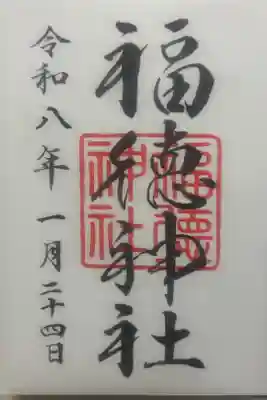 福徳神社
福徳神社
令和八年 一月二十四日